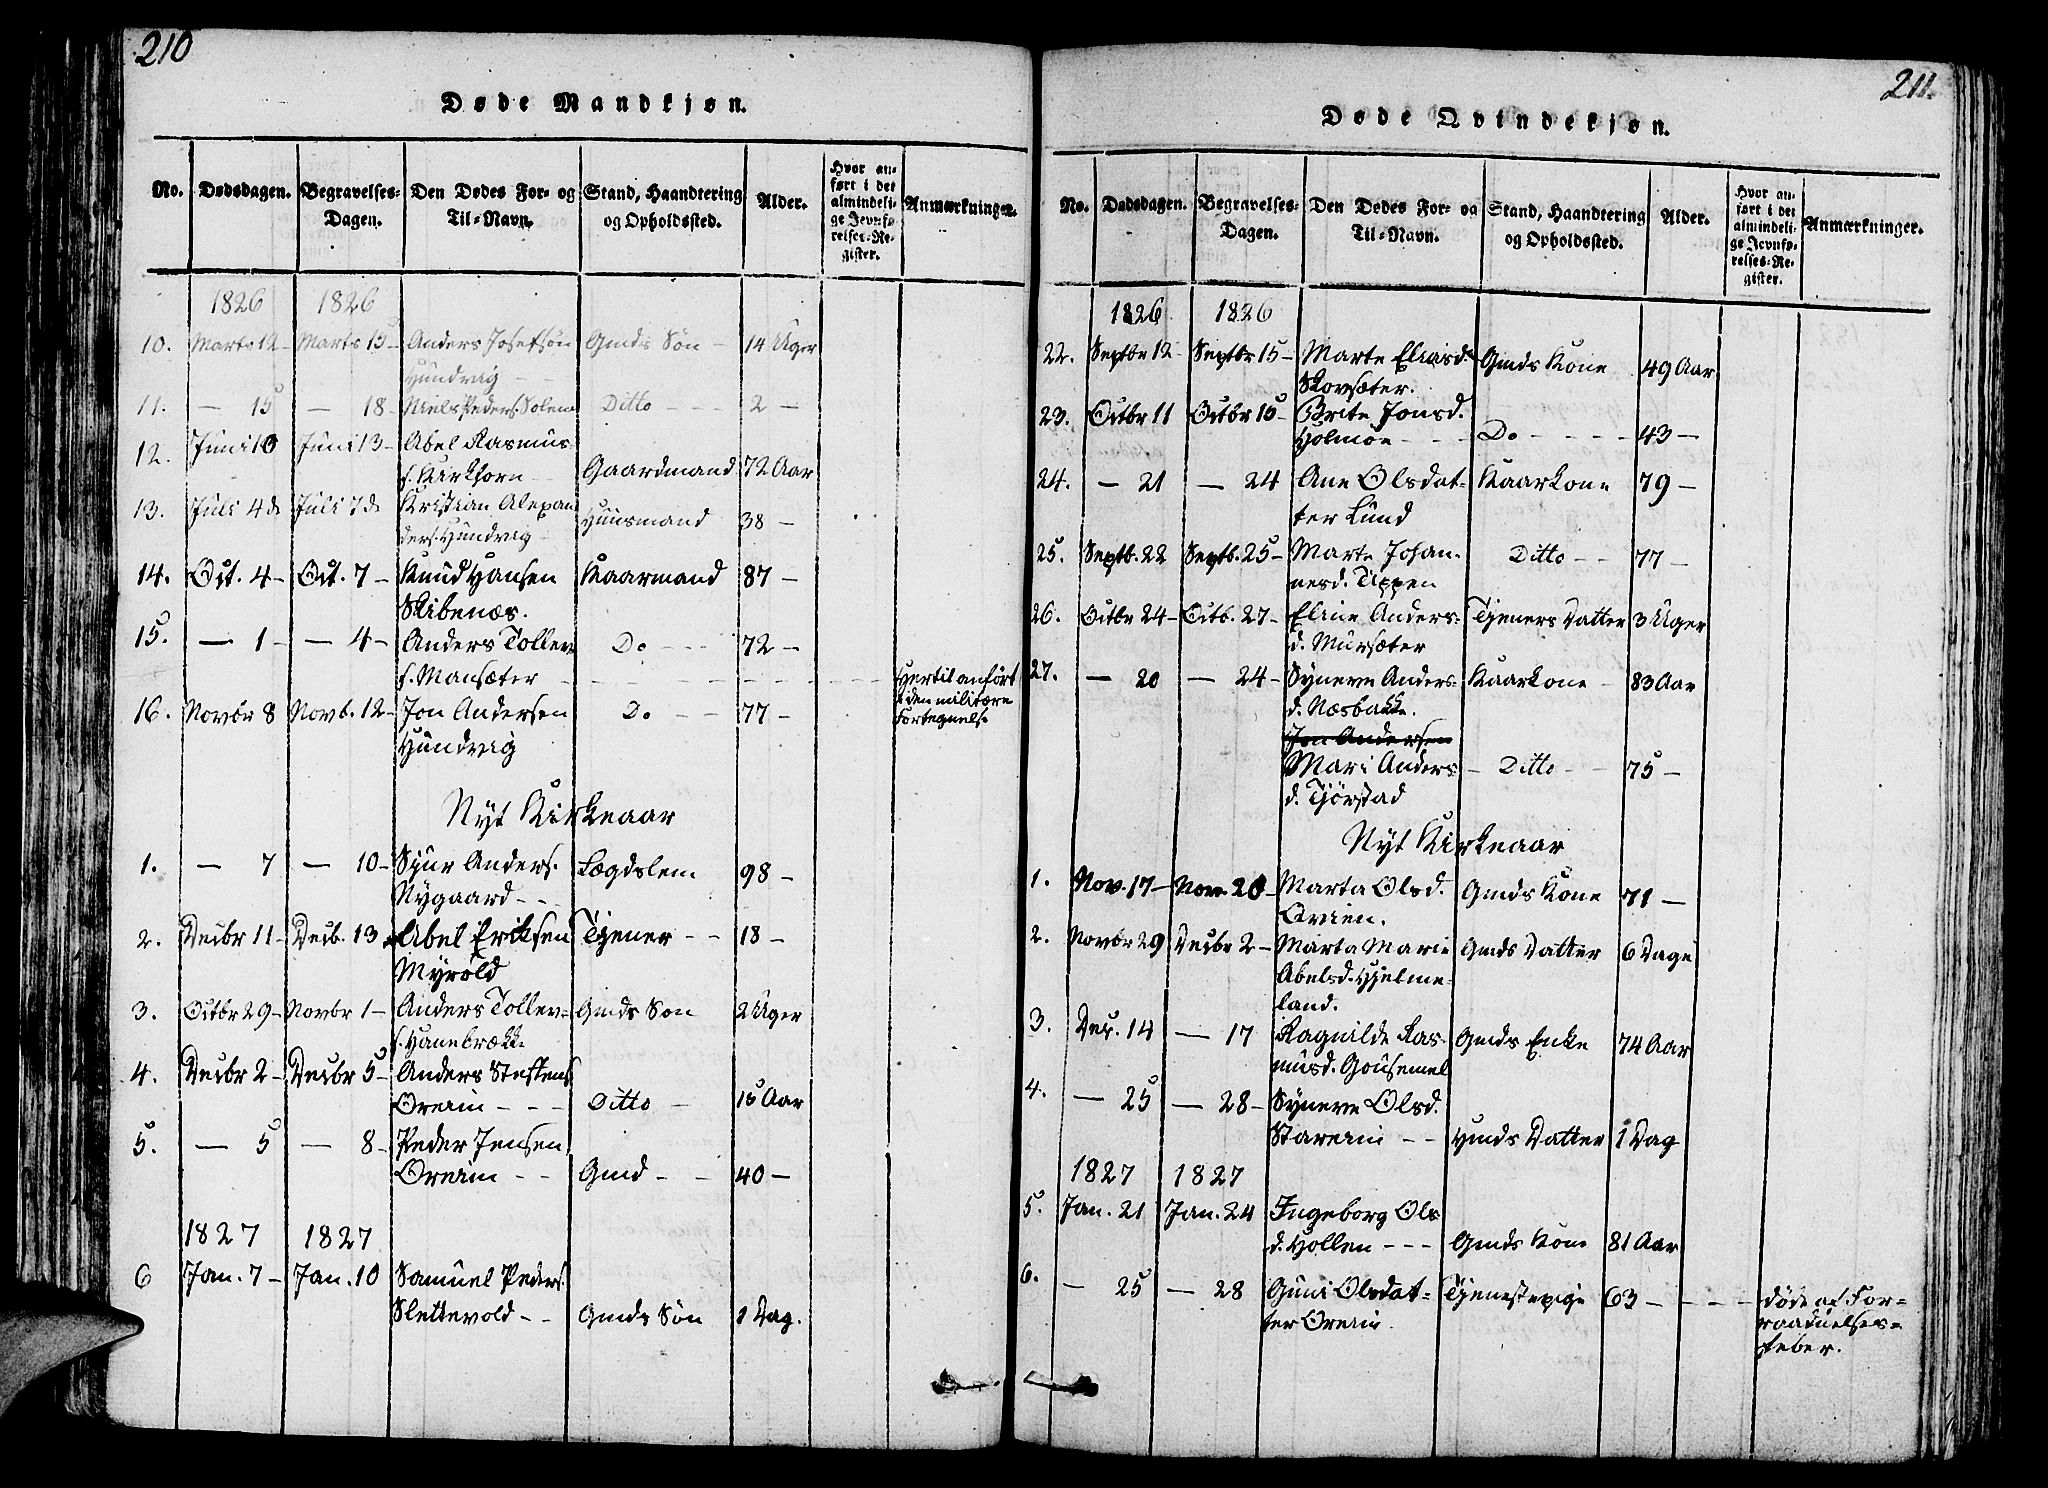 210
Døde Mandkjøn.
No. Dødsdagen. Begravelses-Dagen. Den Dødes For- og Til-Navn. Stand, Haandtering og Opholdssted. Alder. Hvor anført i det almindelige Jevnførelses-Register. Anmærkninger.
1826 1826
10. Marts 12 - Marts 15 - Anders Josefsøn Gmds Søn - 14 Uger
Hundvig - -
11. - 15 - 18 - Niels Peders. Solem Ditto - - - 2 -
12. Juni 10 Juni 13 - Abel Rasmus
s. Kirkhorn - - Gaardmand 72 Aar
13. Juli 4de Juli 7de Kristian Alexan
ders. Hundvig Huusmand 38 -
14. Oct. 4 - Oct. 7 - Knud Hansen Kaarmand 87 -
Skibenæs.
15. - 1 - - 4 - Anders Tollev Do - - - 72 -
s. Mansæter - - - - - - - - Hertil anført
i den militære
16. Novbr 8 Novb. 12 - Jon Andersen Do - - 77 - Fortegnelse
Hundvig
Nyt Kirkeaar
1. - 7 - 10 - Sjur Anders. Lægdslem 98 -
Nygaard - - -
2. Decbr 11 - Decb. 13 Abel Eriksen Tjener - - 18 -
Myrold
3. Octbr 29 - Novbr 1 - Anders Tollev- Gmds Søn 2 Uger
s. Hanebrække
4. Decbr 2 - Decbr 5 - Anders Steffens
Qvam - - - Ditto - 16 Aar
5. - 5 - - 8 - Peder Jensen
- - Gmd - - 40 -
1827 1827
6 Jan. 7 - Jan. 10 Samuel Peders.
Slettevold - - Gmds Søn 1 Dag.
211.
Døde Qvindekjøn.
No. Dødsdagen. Begravelses-Dagen. Den Dødes For- og Til-Navn. Stand, Haandtering og Opholdssted. Alder. Hvor anført i det almindelige Jevnførelses-Register. Anmærkninger.
1826. 1826
22. Septbr 12 - Septbr 15 - Marte Eliasd. Gmds Kone 49 Aar
Skorsæter.
23. Octbr 11 Octbr 15 - Brite Jonsd.
Holmøe - - - Do - - - - 43 -
24. - 21 - 24 Ane Olsdat- Kaarkone 79 -
ter Lund
25. Septb. 22 Septb. 25 - Marte Johan- Ditto - - 77 -
nesd. Tippen
26. Octbr 24 - Octb. 27 - Eline Anders- Tjeners Datter 3 Uger
d. Mursæter
27. - 20 - 24 - Synneve Anders- Kaarkone - 83 Aar
d. Næsbakke.
Jon Andersen
Mari Anders - Ditto - - 75 -
d. Tjørstad
Nyt Kirkeaar
1. Nov. 17 - Nov. 20 - Marta Olsd. Gmds Kone 71 -
2. Novbr 29 Decbr 2 - Marta Marie Gmds Datter 6 Dage
Abelsd. Hjelme-
land.
3. Dec. 14 - 17 Ragnilde Ras- Gmds Enke 74 Aar
musd. Gousemel
4. - 25 - 28 - Synneve Olsd.
- - Hmds Datter 1 Dag
1827 1827
5. Jan. 21 Jan. 24 Ingeborg Ols
d. Hollen - - - Gmds Kone 81 Aar
6. - 25 - 28 Guni Olsdat- Tjenestepige 63 - - - - døde af For-
ter raadnelses-
feber.